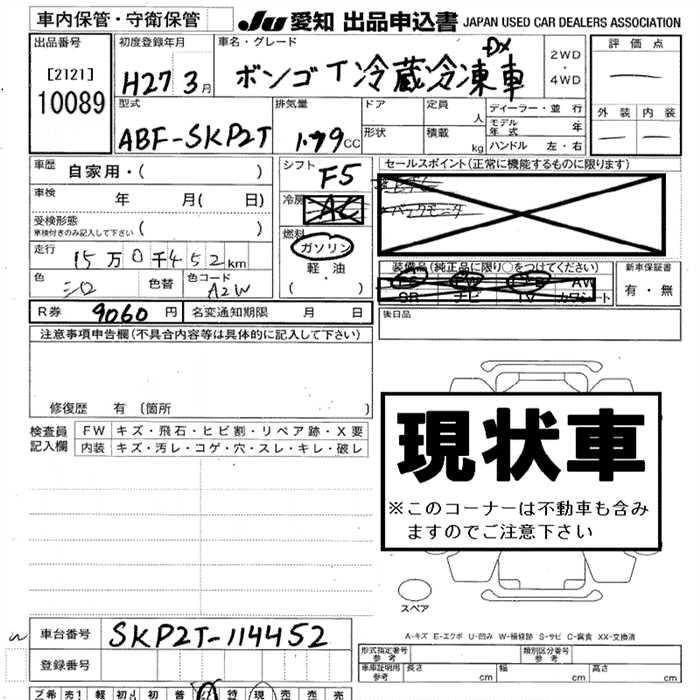 車内保管・守衛保管
JU 愛知 出品申込書 JAPAN USED CAR DEALERS ASSOCIATION
出品番号
[2121]
10089
初度登録年月
H27 3月
車名・グレード
DX
ボンゴT冷蔵冷凍車
2WD
・
4WD
評価点
外装 内装
型式
ABF-SKP2T
排気量
1.79CC
ドア
形状
定員
人
積載
kg
ディーラー・並行
モデル年式 年
ハンドル 左・右
車歴 自家用・( )
車検 年 月( 日)
受検形態
車検付きのみ記入して下さい ( )
走行 15万0千452km
色 シロ
色替
色コード A2W
シフト
F5
冷房
AC
燃料
ガソリン
軽・油
・
( )
セールスポイント(正常に機能するものに限ります)
バックモニタ
装備品(純正品に限り○をつけてください)
PS PW AB AW
SR ナビ TV カワシート
新車保証書
有・無
後日品
R券 9060円 名変通知期限 月 日
注意事項申告欄(不具合内容等は具体的に記入して下さい)
修復歴 有〔箇所 〕
検査員
記入欄
FW キズ・飛石・ヒビ割・リペア跡・X要
内装 キズ・汚レ・コゲ・穴・スレ・キレ・破レ
現状車
※このコーナーは不動車も含み
ますのでご注意下さい
スペア
A-キズ E-エクボ U-凹み W-補修跡 S-サビ C-腐食 XX-交換済
車台番号 SKP2T-114452
登録番号
形式指定番号
参考
類別区分番号
参考
車庫証明用
参考
長さ cm 幅 cm 高さ cm